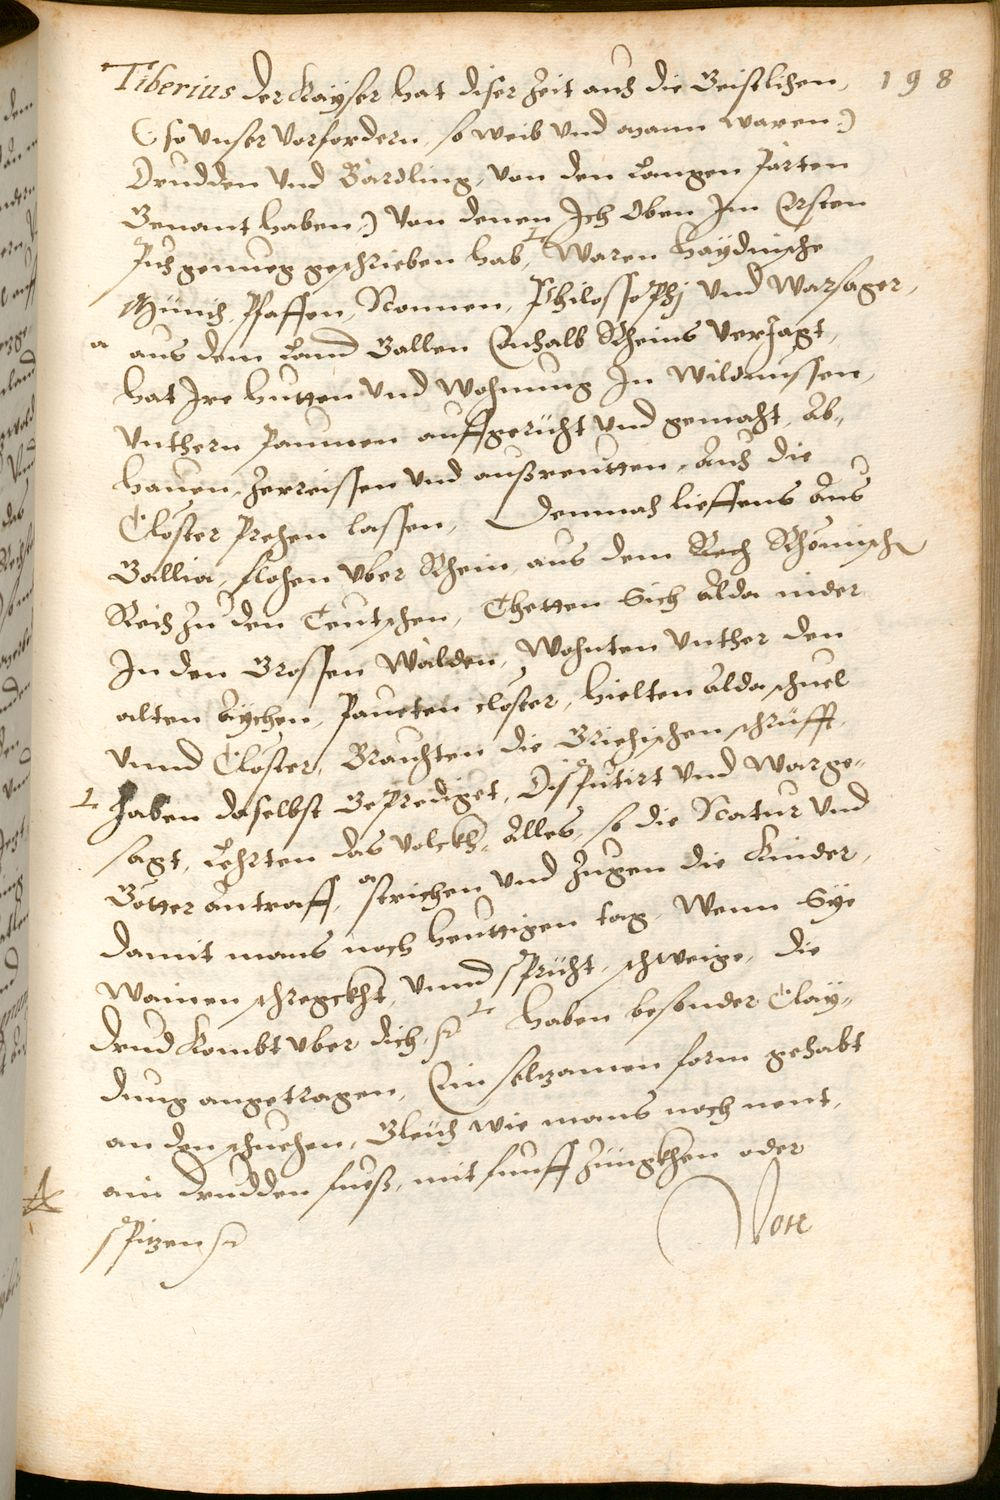 198
Tiberius der Kayser hat diser Zeit auch die Geistlichen,
(: so unser Vorfordern, so weib und mann waren :)
Drudden und Bardling, von den Langen Pärten
Genant haben :) von denen Ich oben Im Ersten
Puch genueg geschrieben hab, ⊥ Waren haydnische
Münich, Pfaffen, Nonnen, Philossophj und Warsager,
a aus dem Land Gallen Enhalb Rheins verJagt,
hat Ire hutten und Wohnung In Wildnussen,
Unthern Paumen auffgericht und gemacht, Ab-
hauen, Zerreissen und außreutten, Auch die
Clöster Prechen lassen, Demnach lieffens Aus
Gallia, flohen vber Rhein, aus dem Rech Rhömisch
Reich Zu den Teutschen, Thetten Sich Alda nider
In den Grossen Wälden, Wohnten Unther den
alten Aychen, Pauten clöster, hielten Alda schuel
Unnd Clöster, Brauchten die Griechischen schrüfft,
⊥ Haben daselbst GePrediget, DisPutirt Und Warge-
sagt, Lehrten das volckh, Alles, so die Natur Und
Götter antraff, a strichen Und Zugen die Kinder,
damit mans noch heuttigen tag, Wenn Sye
Wainen schregckht, Unnd sPricht, schweige, die
drud Kombt vber dich, ꝛc ⊥ haben besonder Clay-
dung angetragen, Ein selzamen form gehabt
an den schuehen, Gleich wie mans noch nent,
ain drudden fueß, mit funff Züngkhen oder
sPizen ꝛc
Von